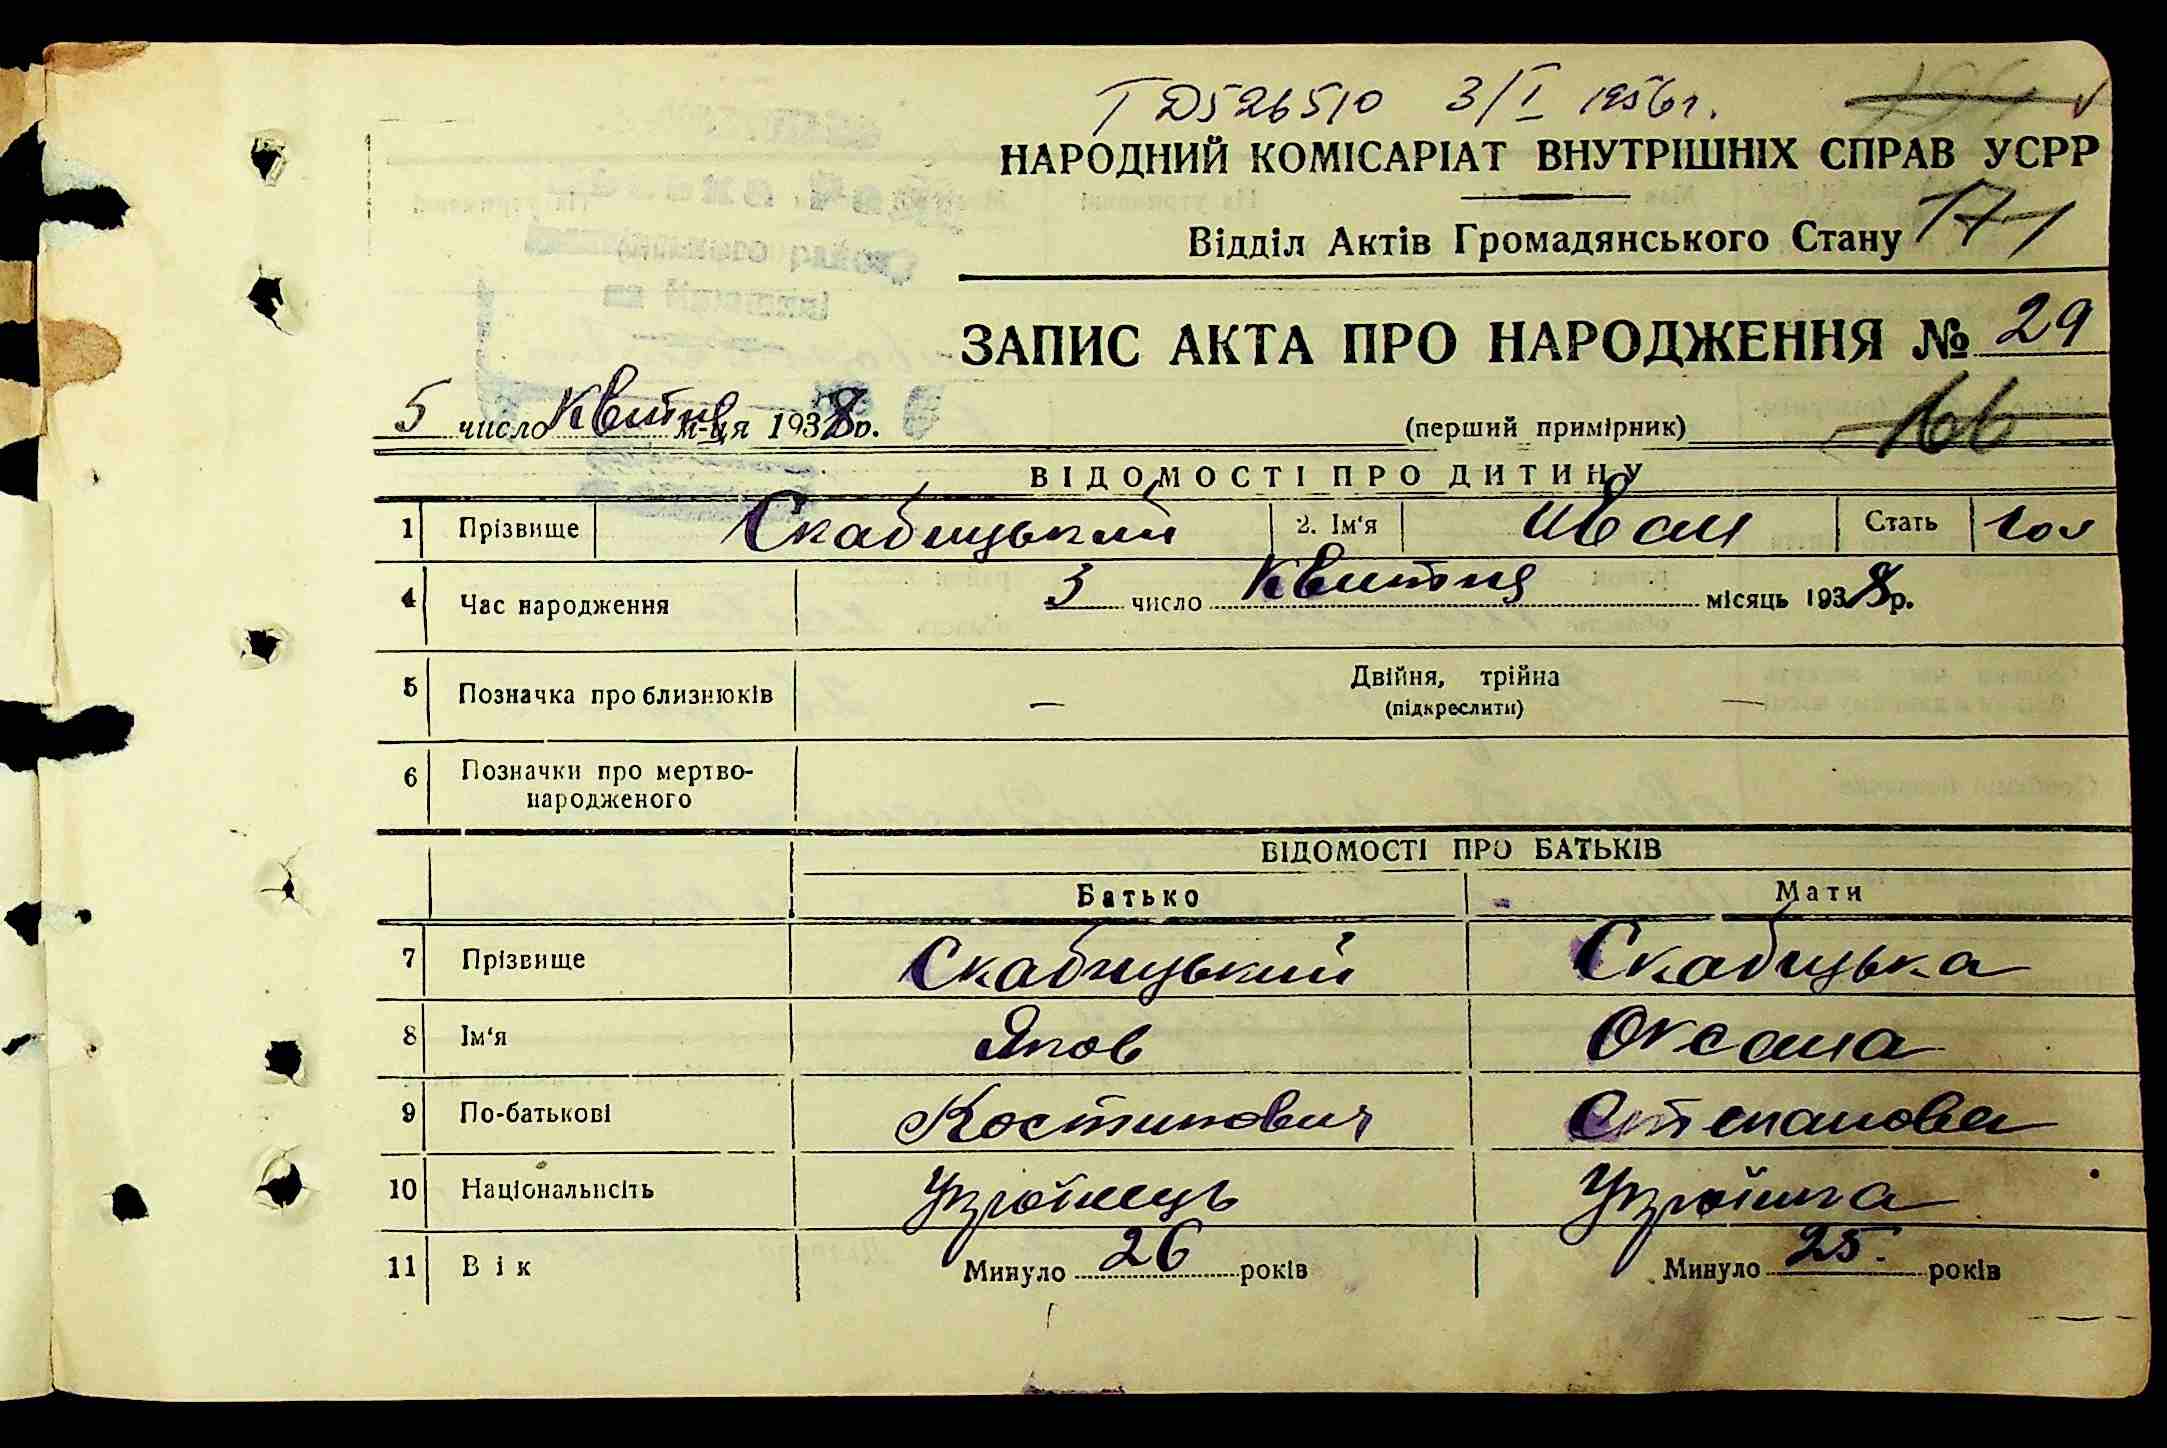 ТД526510 3/I 1956 г.
НАРОДНИЙ КОМІСАРІАТ ВНУТРІШНІХ СПРАВ УСРР
Відділ Актів Громадянського Стану 171
ЗАПИС АКТА ПРО НАРОДЖЕННЯ № 29
5 число Квітня м-ця 1938 р.
(перший примірник) 166
ВІДОМОСТІ ПРО ДИТИНУ
1 Прізвище Скабицький 2. Ім'я Іван Стать чол
4 Час народження 3 число Квитня місяць 1938 р.
5 Позначка про близнюків — Двійня, трійна —
(підкреслити)
6 Позначки про мертво-
народженого
ВІДОМОСТІ ПРО БАТЬКІВ
Батько Мати
7 Прізвище Скабицький Скабицька
8 Ім'я Яков Оксана
9 По-батькові Костинович Степанова
10 Національність Українець Українка
11 Вік Минуло 26 років Минуло 25 років